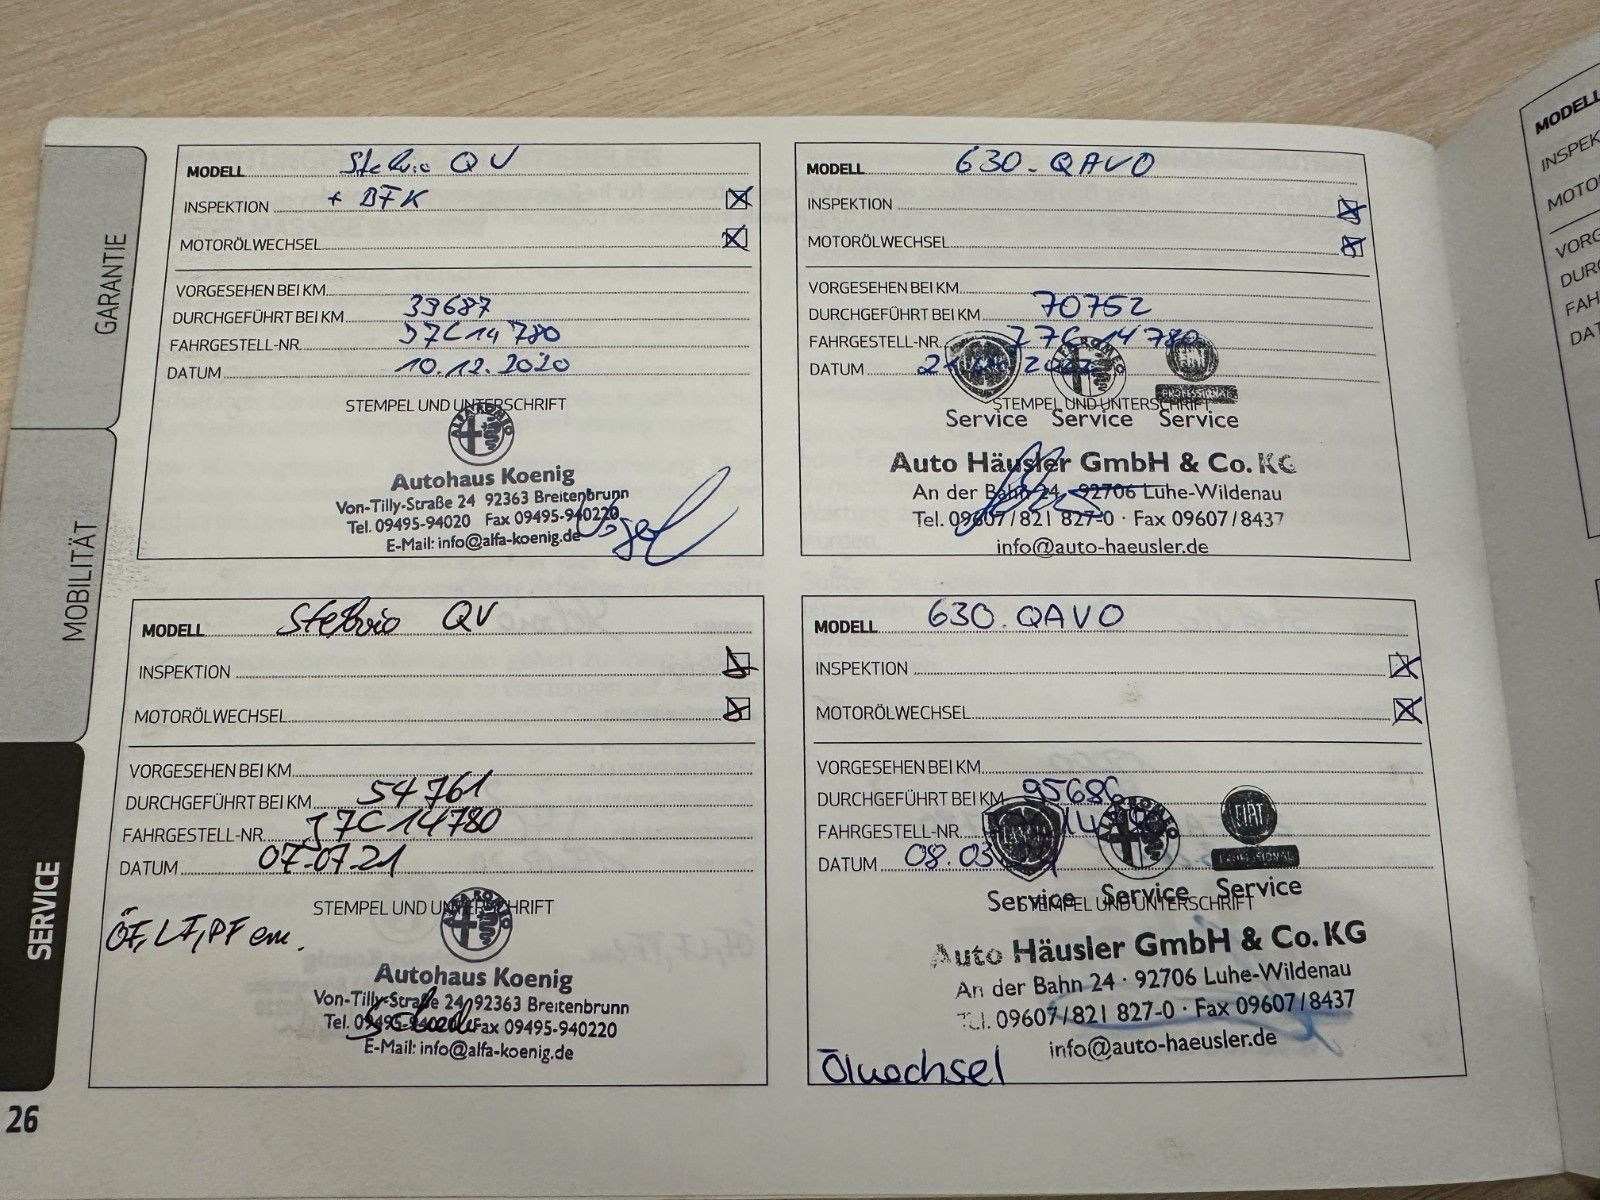 GARANTIE
MOBILITÄT
SERVICE
26
MODELL Stelvio QV
INSPEKTION + BFK
MOTORÖLWECHSEL
VORGESEHEN BEI KM
DURCHGEFÜHRT BEI KM 39687
FAHRGESTELL-NR. 37C14780
DATUM 10.12.2020
STEMPEL UND UNTERSCHRIFT
ALFA ROMEO
Autohaus Koenig
Von-Tilly-Straße 24 92363 Breitenbrunn
Tel. 09495-94020 Fax 09495-940220
E-Mail: info@alfa-koenig.de
MODELL 630.QAVO
INSPEKTION
MOTORÖLWECHSEL
VORGESEHEN BEI KM
DURCHGEFÜHRT BEI KM 70752
FAHRGESTELL-NR. 77C14780
DATUM
STEMPEL UND UNTERSCHRIFT
Service Service Service
Auto Häusler GmbH & Co. KG
An der Bahn 24 92706 Luhe-Wildenau
Tel. 09607/821 827-0 · Fax 09607/8437
info@auto-haeusler.de
MODELL Stelvio QV
INSPEKTION
MOTORÖLWECHSEL
VORGESEHEN BEI KM
DURCHGEFÜHRT BEI KM 54761
FAHRGESTELL-NR. 37C14780
DATUM 07.07.21
STEMPEL UND UNTERSCHRIFT
ÖF, LF, PF ern.
ALFA ROMEO
Autohaus Koenig
Von-Tilly-Straße 24 92363 Breitenbrunn
Tel. 09495-94020 Fax 09495-940220
E-Mail: info@alfa-koenig.de
MODELL 630.QAVO
INSPEKTION
MOTORÖLWECHSEL
VORGESEHEN BEI KM
DURCHGEFÜHRT BEI KM 95686
FAHRGESTELL-NR.
DATUM 08.03
FIAT
PROFESSIONAL
Service Service Service
STEMPEL UND UNTERSCHRIFT
Auto Häusler GmbH & Co. KG
An der Bahn 24 · 92706 Luhe-Wildenau
Tel. 09607/821 827-0 · Fax 09607/8437
info@auto-haeusler.de
Ölwechsel
MODELL
INSPEK
MOTO
VORG
DUR
FAH
DAT